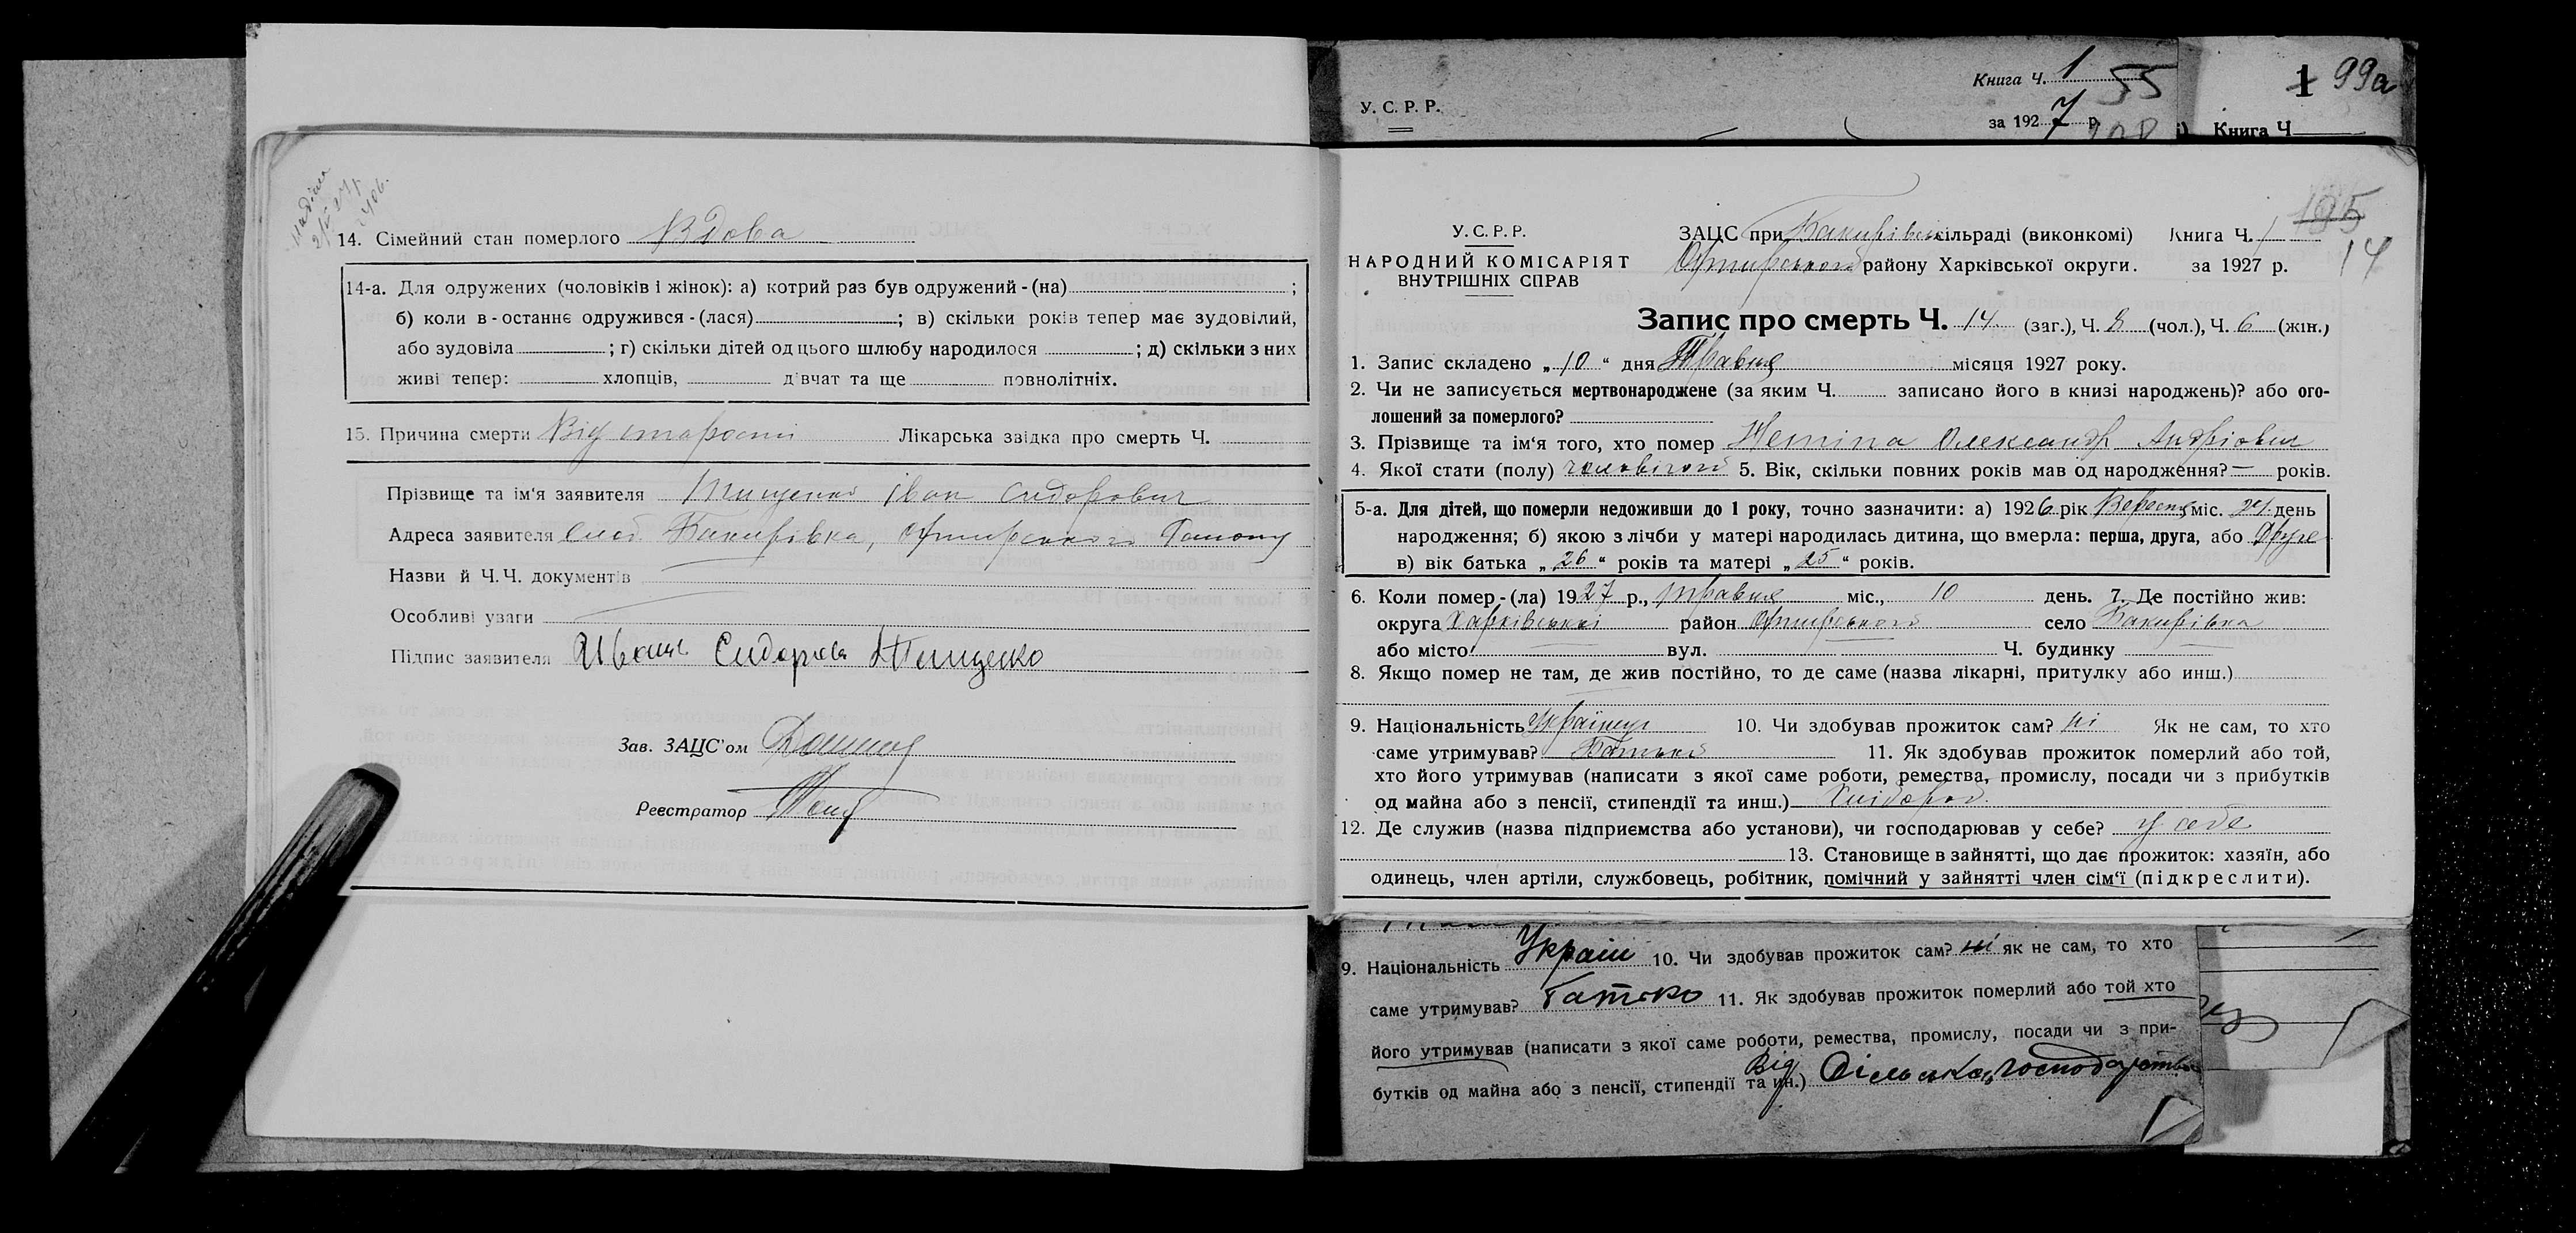 14. Сімейний стан померлого Вдова
14-а. Для одружених (чоловіків і жінок): а) котрий раз був одружений - (на) ;
б) коли в - останнє одружився - (лася) ; в) скільки років тепер має зудовілий,
або зудовіла ; г) скільки дітей од цього шлюбу народилося ; д) скільки з них
живі тепер: хлопців, дівчат та ще повнолітніх.
15. Причина смерти Від старости Лікарська звідка про смерть Ч.
Прізвище та ім'я заявителя Тищенко Іван Сидорович
Адреса заявителя Слоб Бакирівка, Району
Назви й Ч.Ч. документів
Особливі уваги
Підпис заявителя Сидоров Тищенко
Зав. ЗАЦС'ом
Реєстратор
У. С. Р. Р.
Книга Ч. 1 55
за 1927 р.
1 99а
Книга Ч
У. С. Р. Р.
НАРОДНИЙ КОМІСАРІЯТ
ВНУТРІШНІХ СПРАВ
ЗАЦС при Бакирівськ сільраді (виконкомі) Книга Ч. 1
195
14
району Харківської округи. за 1927 р.
Запис про смерть Ч. 14 (заг.), Ч. 8 (чол.), Ч. 6 (жін.)
1. Запис складено „ 10 “ дня Травня місяця 1927 року.
2. Чи не записується мертвонароджене (за яким Ч. записано його в книзі народжень)? або ого-
лошений за померлого?
3. Прізвище та ім'я того, хто помер Олександр Андріович
4. Якої стати (полу) чоловічої 5. Вік, скільки повних років мав од народження? — років.
5-а. Для дітей, що померли недоживши до 1 року, точно зазначити: а) 1926 рік Вересня міс. день
народження; б) якою з лічби у матері народилась дитина, що вмерла: перша, друга, або Друге
в) вік батька „ 26 “ років та матері „ 25 “ років.
6. Коли помер - (ла) 1927 р., травня міс., 10 день. 7. Де постійно жив:
округа Харківської район село Бакирівка
або місто вул. Ч. будинку
8. Якщо помер не там, де жив постійно, то де саме (назва лікарні, притулку або инш.)
9. Національність Українець 10. Чи здобував прожиток сам? ні Як не сам, то хто
саме утримував? Батько 11. Як здобував прожиток померлий або той,
хто його утримував (написати з якої саме роботи, ремества, промислу, посади чи з прибутків
од майна або з пенсії, стипендії та инш.) Хлібороб.
12. Де служив (назва підприємства або установи), чи господарював у себе? у себе
13. Становище в зайнятті, що дає прожиток: хазяїн, або
одинець, член артіли, службовець, робітник, помічний у зайнятті член сім'ї (підкреслити).
9. Національність Україн 10. Чи здобував прожиток сам? ні як не сам, то хто
саме утримував? Батько 11. Як здобував прожиток померлий або той хто
його утримував (написати з якої саме роботи, ремества, промислу, посади чи з при-
бутків од майна або з пенсії, стипендії та ин.) Від